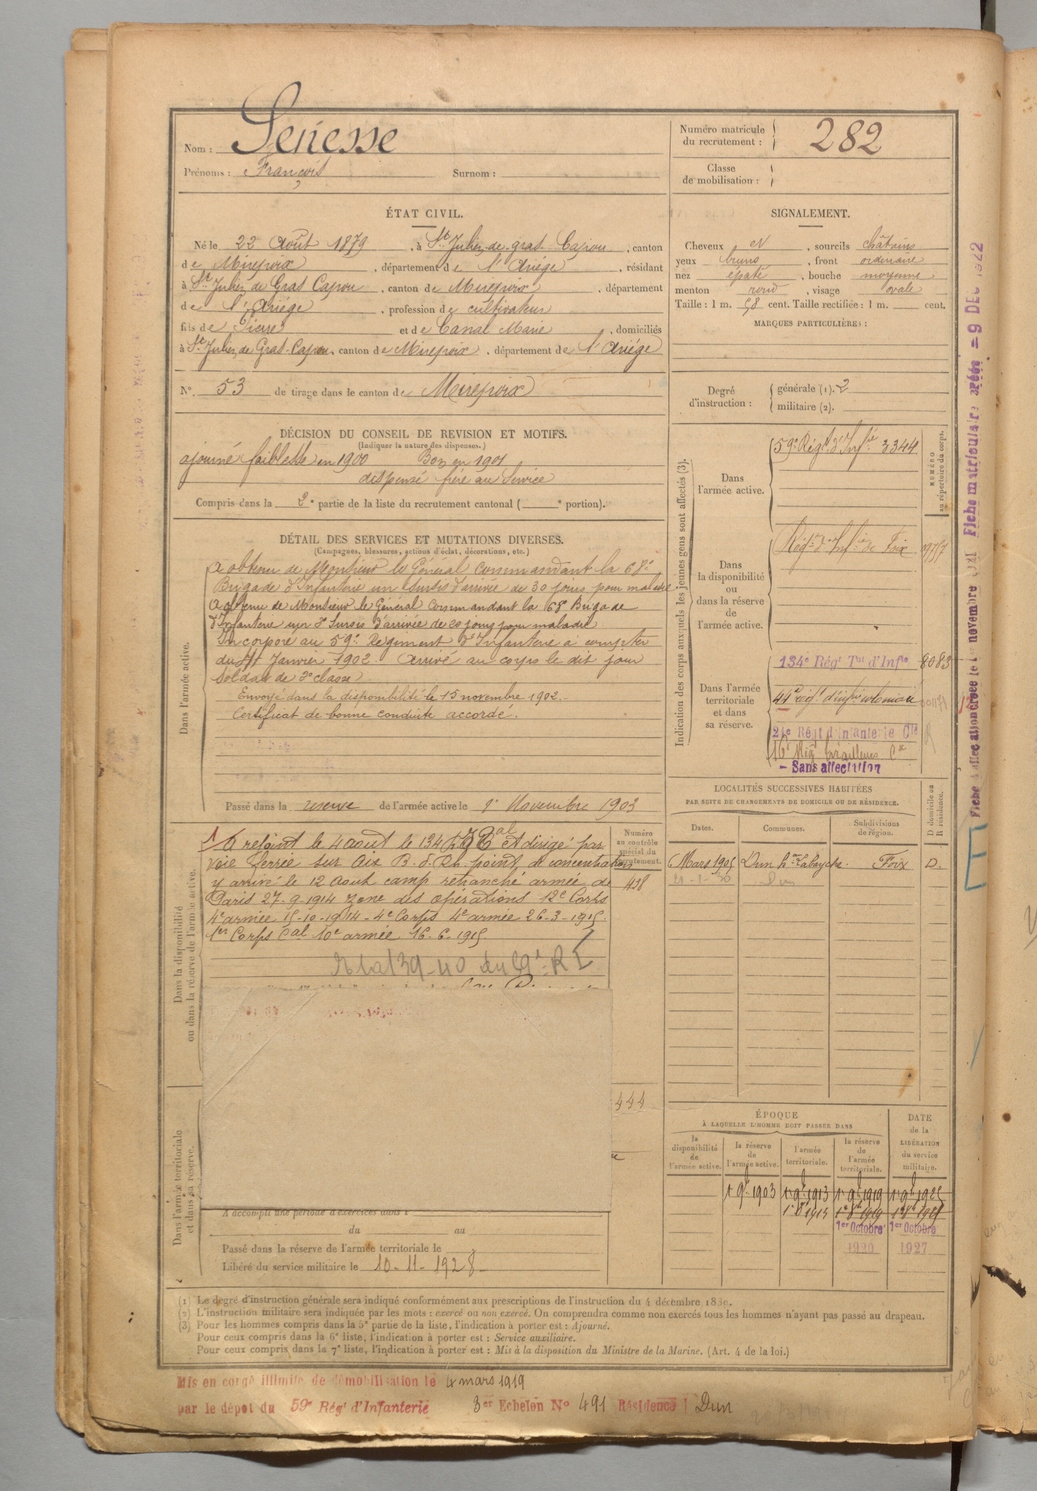 Nom : Senesse
Prénoms : François Surnom :
Numéro matricule du recrutement : 282
Classe de mobilisation :
ÉTAT CIVIL.
Né le 22 Août 1879, à St Julien de gras Capou, canton
de Mirepoix, département de l'Ariège, résidant
à St Julien de Gras Capou, canton de Mirepoix, département
de l'Ariège, profession de cultivateur
fils de Pierre et de Canal Marie, domiciliés
à St Julien de Gras-Capou, canton de Mirepoix, département de l'Ariège
N° 53 de tirage dans le canton de Mirepoix
SIGNALEMENT.
Cheveux et, sourcils châtains
yeux bruns, front ordinaire
nez épaté, bouche moyenne
menton rond, visage ovale
Taille : 1 m. 58 cent. Taille rectifiée : 1 m. cent.
MARQUES PARTICULIÈRES :
Degré d'instruction : générale (1). 2
militaire (2).
DÉCISION DU CONSEIL DE REVISION ET MOTIFS.
(Indiquer la nature des dispenses.)
ajourné faiblesse en 1900 Bon en 1901
dispensé frère au Service
Compris dans la 2e partie de la liste du recrutement cantonal ( e portion).
DÉTAIL DES SERVICES ET MUTATIONS DIVERSES.
(Campagnes, blessures, actions d'éclat, décorations, etc.)
Dans l'armée active.
A obtenu de Monsieur le Général Commandant la 68e
Brigade d'Infanterie un Sursis d'arrivée de 30 jours pour maladie
A obtenu de Monsieur le Général Commandant la 68e Brigade
d'Infanterie un 2e Sursis d'arrivée de 20 jours pour maladie
Incorporé au 59e Régiment d'Infanterie à compter
du Janvier 1902 Arrivé au corps le dit jour
Soldat de 2e classe
Envoyé dans la disponibilité le 15 novembre 1902.
Certificat de bonne conduite accordé.
Passé dans la réserve de l'armée active le 1er Novembre 1903
Indication des corps auxquels les jeunes gens sont affectés (3).
NUMÉRO au répertoire du corps.
Dans l'armée active.
59e Régt d'Infie 3344
Dans la disponibilité ou dans la réserve de l'armée active.
Régt d'Infie de Foix
Dans l'armée territoriale et dans sa réserve.
134e Régt Tal d'Infie 8083
44e régt d'infie coloniale
21e Régt d'Infanterie Cle
16e Régt tirailleurs
- Sans affectation
Dans la disponibilité ou dans la réserve de l'armée active.
Numéro au contrôle spécial du recrutement.
438
A rejoint le 4 Août le 134e Et dirigé par
voie ferrée sur Aix B. d. Rh. point de concentration
y arrivé le 12 Août camp retranché armée de
Paris 27-9-1914 zone des opérations 12e Corps
4e armée 15-10-1914 - 4e Corps 4e armée 26-3-1915
1er Corps Cal 10e armée 16-6-1915
444
LOCALITÉS SUCCESSIVES HABITÉES
PAR SUITE DE CHANGEMENTS DE DOMICILE OU DE RÉSIDENCE.
Dates. Communes. Subdivisions de région. D domicile ou R résidence.
Mars 1905 Dun Foix D.
Dun
ÉPOQUE
À LAQUELLE L'HOMME DOIT PASSER DANS
la disponibilité de l'armée active. la réserve de l'armée active. l'armée territoriale. la réserve de l'armée territoriale.
DATE de la LIBÉRATION du service militaire.
1er 9bre 1903 1er 9bre 1913 1er 9bre 1919
1er Octobre 1er Octobre
1920 1927
Dans l'armée territoriale et dans sa réserve.
A accompli une période d'exercices dans :
du au
Passé dans la réserve de l'armée territoriale le
Libéré du service militaire le 10-11-1928
(1) Le degré d'instruction générale sera indiqué conformément aux prescriptions de l'instruction du 4 décembre 1889.
(2) L'instruction militaire sera indiquée par les mots : exercé ou non exercé. On comprendra comme non exercés tous les hommes n'ayant pas passé au drapeau.
(3) Pour les hommes compris dans la 5e partie de la liste, l'indication à porter est : Ajourné.
Pour ceux compris dans la 6e liste, l'indication à porter est : Service auxiliaire.
Pour ceux compris dans la 7e liste, l'indication à porter est : Mis à la disposition du Ministre de la Marine. (Art. 4 de la loi.)
Mis en congé illimité de démobilisation le 4 mars 1919
par le dépôt du 59e Régt d'Infanterie 3er Echelon N° 491 Résidence : Dun